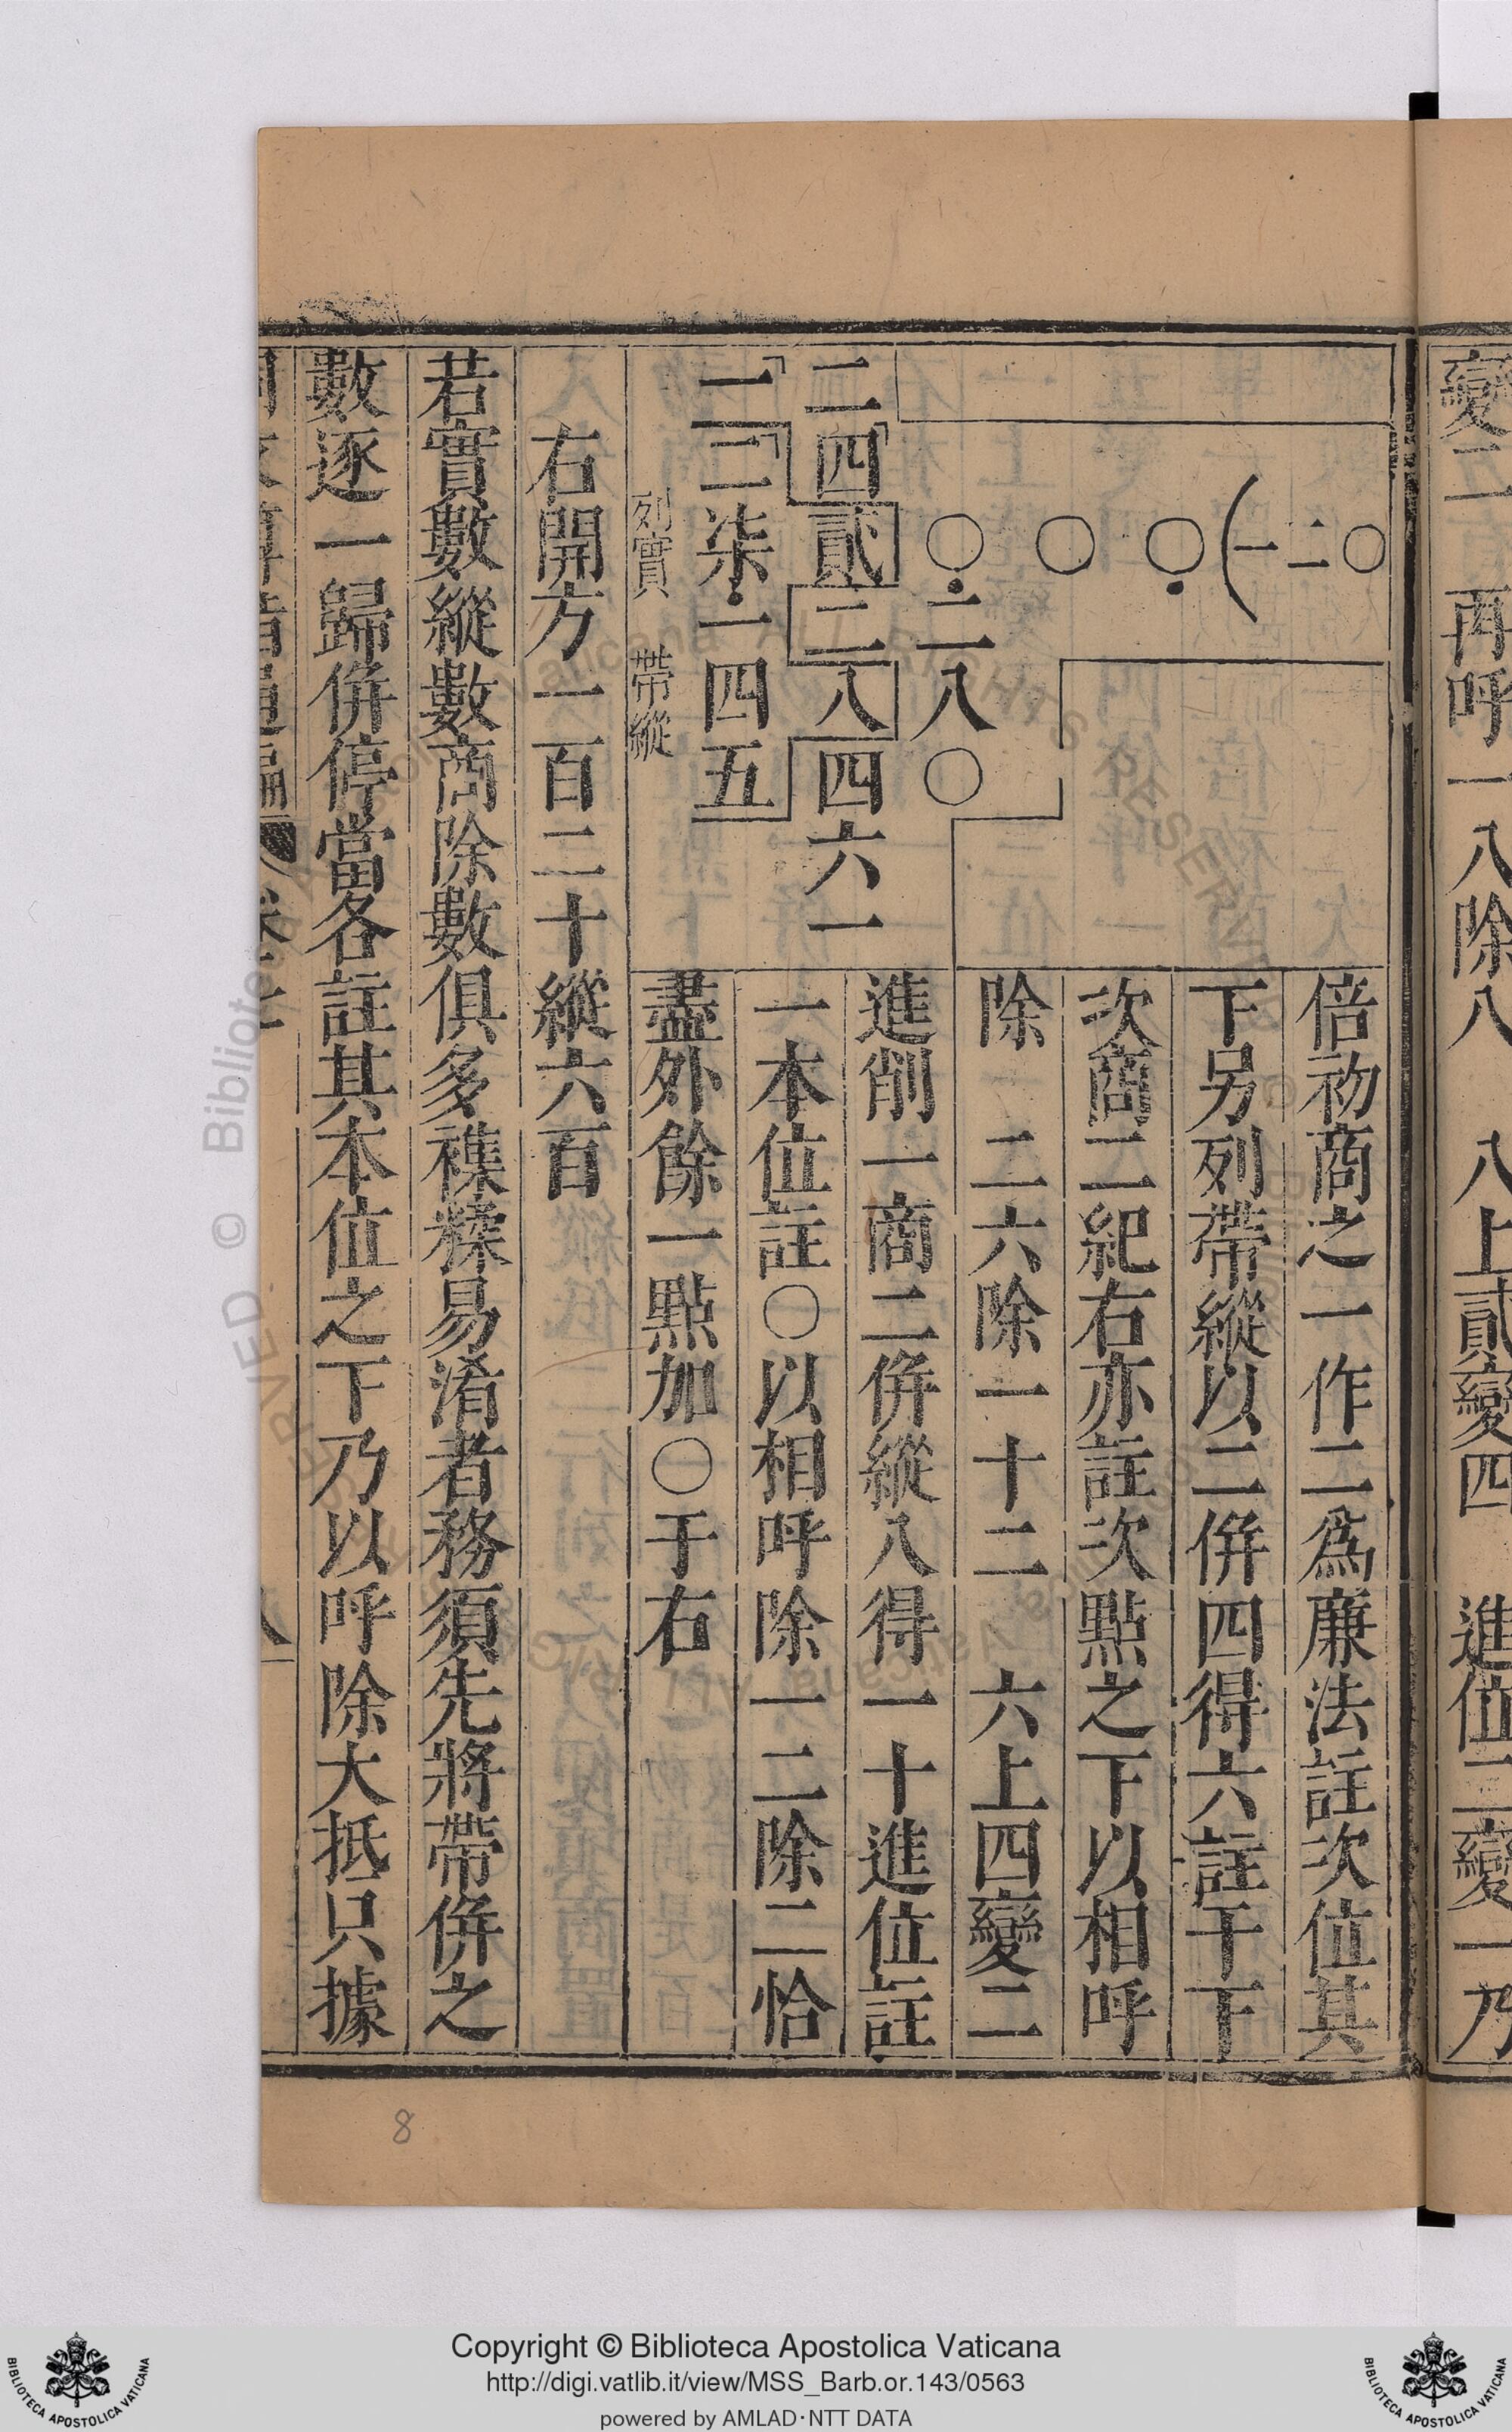 變二　再呼一八除八　八上貳變四　進位二變一乃
倍初商之一作二爲廉法註次位其
下另列帶縱以二倂四得六註于下
次商二紀右亦註次點之下以相呼
除　二六除一十二　六上四變二
進削一商二倂縱八得一十進位註
一本位註〇以相呼除一二除二恰
盡外餘一點加〇于右
〇
二
一
〇
〇
〇二八〇
二四貳二八四六一
一二柒一四五
列實　帶縱
右開方一百二十縱六百
若實數縱數商除數俱多襍糅易淆者務須先將帶倂之
數逐一歸倂停當各註其本位之下乃以呼除大抵只據
8
Copyright © Biblioteca Apostolica Vaticana
http://digi.vatlib.it/view/MSS_Barb.or.143/0563
powered by AMLAD·NTT DATA
BIBLIOTECA APOSTOLICA VATICANA
BIBLIOTECA APOSTOLICA VATICANA